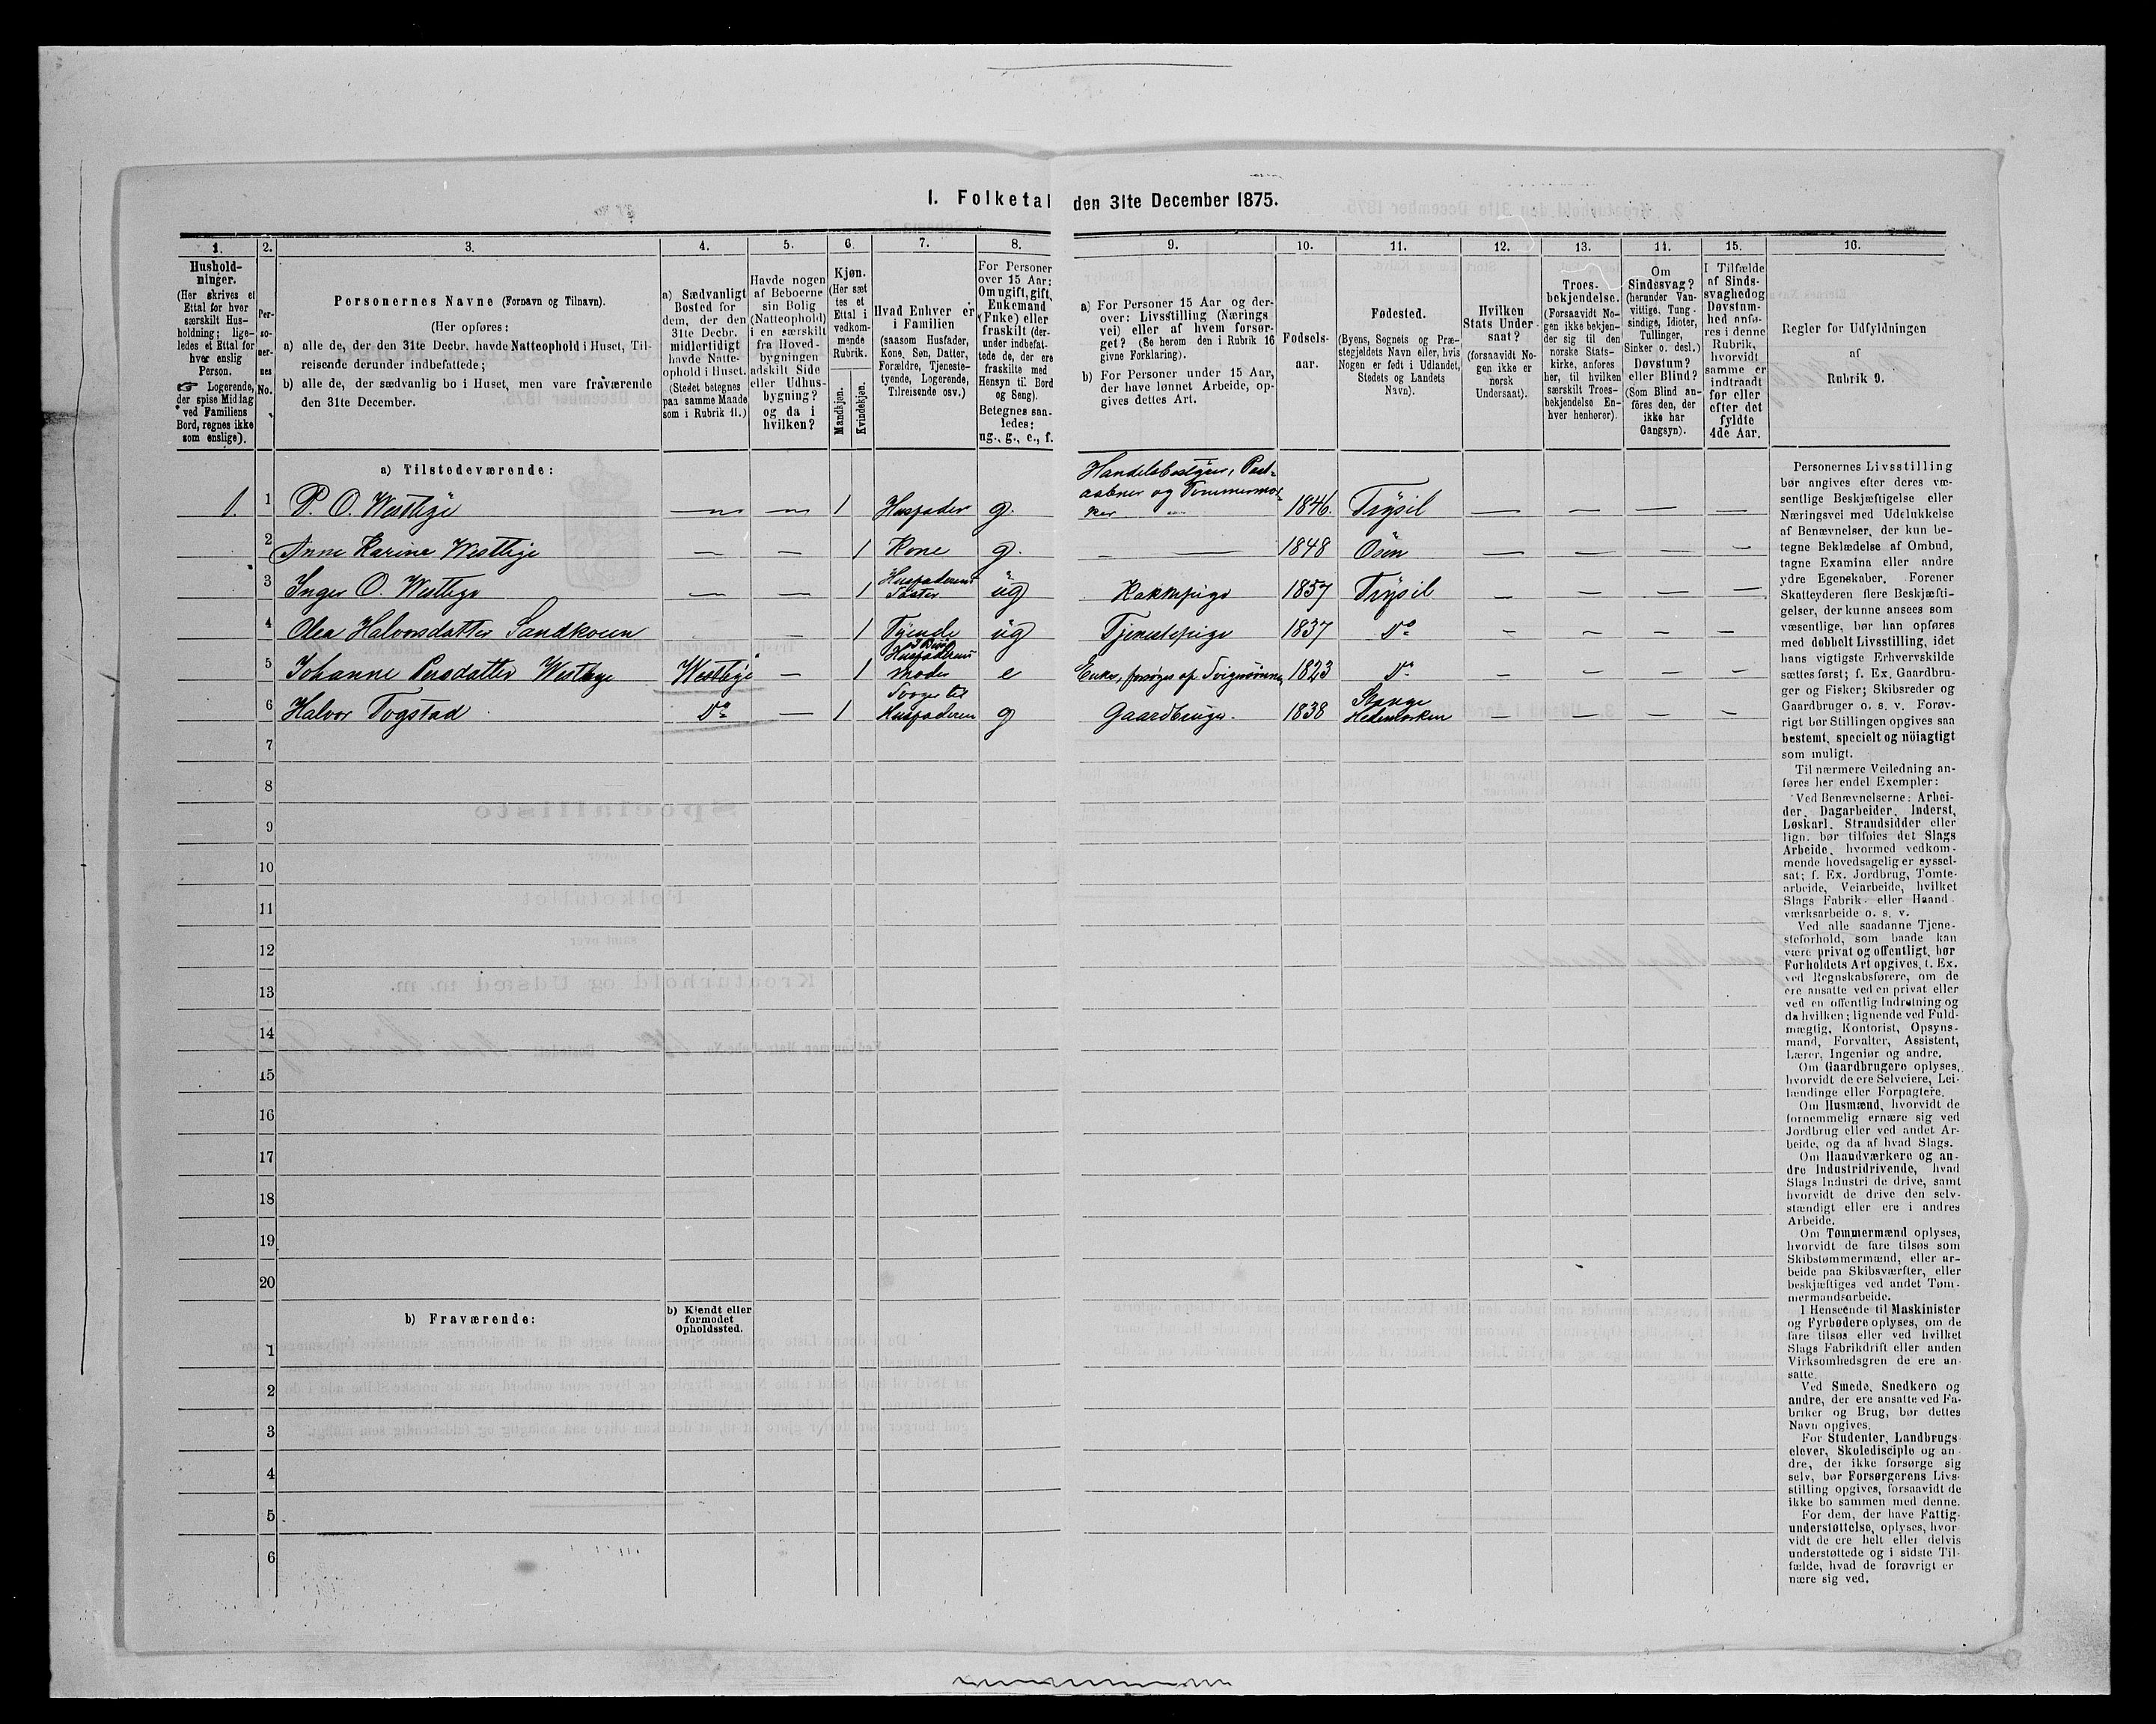 I. Folketal den 31te December 1875.
1.
Hushold-
ninger.
(Her skrives et
Ettal for hver
særskilt Hus-
holdning; lige-
ledes et Ettal for
hver enslig
Person.
☞ Logerende,
der spise Middag
ved Familiens
Bord, regnes ikke
som enslige).
2.
Per-
so-
ner-
nes
No.
3.
Personernes Navne (Fornavn og Tilnavn).
(Her opføres:
a) alle de, der den 31te Decbr. havde Natteophold i Huset, Til-
reisende derunder indbefattede;
b) alle de, der sædvanlig bo i Huset, men vare fraværende
den 31te December.
4.
a) Sædvanligt
Bosted for
dem, der den
31te Decbr.
midlertidigt
havde Natte-
ophold i Huset.
(Stedet betegnes
paa samme Maade
som i Rubrik 11.)
5.
Havde nogen
af Beboerne
sin Bolig
(Natteophold)
i en særskilt
fra Hoved-
bygningen
adskilt Side
eller Udhus-
bygning?
og da i
hvilken?
6.
Kjøn.
(Her sæt
tes et
Ettal i
vedkom-
mende
Rubrik.
Mandkjøn.
Kvindekjøn.
7.
Hvad Enhver er
i Familien
(saasom Husfader,
Kone, Søn, Datter,
Forældre, Tjeneste-
tyende, Logerende,
Tilreisende osv.)
8.
For Personer
over 15 Aar:
Om ugift, gift,
Enkemand
(Enke) eller
fraskilt (der-
under indbefat-
tede de, der ere
fraskilte med
Hensyn til Bord
og Seng).
Betegnes saa-
ledes:
ug., g., e., f.
9.
a) For Personer 15 Aar og der-
over: Livsstilling (Nærings
vei) eller af hvem forsør-
get? (Se herom den i Rubrik 16
givne Forklaring).
b) For Personer under 15 Aar,
der have lønnet Arbeide, op-
gives dettes Art.
10.
Fødsels-
aar.
11.
Fødested.
(Byens, Sognets og Præ-
stegjeldets Navn eller, hvis
Nogen er født i Udlandet,
Stedets og Landets
Navn).
12.
Hvilken
Stats Under-
saat?
(forsaavidt No-
gen ikke er
norsk
Undersaat).
13.
Troes-
bekjendelse.
(Forsaavidt No-
gen ikke bekjen-
der sig til den
norske Stats-
kirke, anføres
her, til hvilken
særskilt Troes-
bekjendelse En-
hver henhører).
14.
Om
Sindssvag?
(herunder Van-
vittige, Tung-
sindige, Idioter,
Tullinger,
Sinker o. desl.)
Døvstum?
eller Blind?
(Som Blind an-
føres den, der
ikke har
Gangsyn).
15.
I Tilfælde
af Sinds-
svaghed og
Døvstum-
hed anfø-
res i denne
Rubrik,
hvorvidt
samme er
indtraadt
før eller
efter det
fyldte
4de Aar.
16.
Regler for Udfyldningen
af
Rubrik 9.
a) Tilstedeværende:
1. 1 P. O. Westbye — — 1 Husfader g. Handelsbestyrer, Post-
aabner og Tømmermær-
ker 1846. Trysil — — — —
2 Anne Karine Westbye — — 1 Kone g. — — 1848 Osen — — — —
3 Inger O. Westbye — — 1 Husfaderens
Søster ug 1857 Trysil — — — —
4 Olea Halvorsdatter Sandkoien — 1 Tyende ug Tjenestepige 1837 Do — — — —
5 Johanne Persdatter Westbye Westbye — 1 Husfaderens
Moder e Enke, forsørges af Svigersønnen 1823 Do — — — —
6 Halvor Togstad Do — 1 Svoger til
Husfaderen g Gaardbruger. 1838 Stange
Hedemarken — — — —
7
8
9
10
11
12
13
14
15
16
17
18
19
20
b) Fraværende:
b) Kjendt eller
formodet
Opholdssted.
1
2
3
4
5
6
Personernes Livsstilling
bør angives efter deres væ-
sentlige Beskjæftigelse eller
Næringsvei med Udelukkelse
af Benævnelser, der kun be-
tegne Beklædelse af Ombud,
tagne Examina eller andre
ydre Egenskaber. Forener
Skatteyderen flere Beskjæfti-
gelser, der kunne ansees som
væsentlige, bør han opføres
med dobbelt Livsstilling, idet
hans vigtigste Erhvervskilde
sættes først; f. Ex. Gaardbru-
ger og Fisker; Skibsreder og
Gaardbruger o. s. v. Forøv-
rigt bør Stillingen opgives saa
bestemt, specielt og nöiagtigt
som muligt.
Til nærmere Veiledning an-
føres her endel Exempler:
Ved Benævnelserne: Arbei-
der, Dagarbeider, Inderst,
Løskarl, Strandsidder eller
lign. bør tilføies det Slags
Arbeide, hvormed vedkom-
mende hovedsagelig er syssel-
sat; f. Ex. Jordbrug, Tomte-
arbeide, Veiarbeide, hvilket
Slags Fabrik- eller Haand-
værksarbeide o. s. v.
Ved alle saadanne Tjene-
steforhold, som baade kan
være privat og offentligt, bør
Forholdets Art opgives, f. Ex.
ved Regnskabsførere, om de
ere ansatte ved en privat eller
ved en offentlig Indretning og
da hvilken; lignende ved Fuld-
mægtig, Kontorist, Opsyns-
mand, Forvalter, Assistent,
Lærer, Ingeniør og andre.
Om Gaardbrugere oplyses,
hvorvidt de ere Selveiere, Lei-
lændinge eller Forpagtere.
Om Husmænd, hvorvidt de
fornemmelig ernære sig ved
Jordbrug eller ved andet Ar-
beide, og da af hvad Slags.
Om Haandværkere og an-
dre Industridrivende, hvad
Slags Industri de drive, samt
hvorvidt de drive den selv-
stændigt eller ere i andres
Arbeide.
Om Tømmermænd oplyses,
hvorvidt de fare tilsøs som
Skibstømmermænd, eller ar-
beide paa Skibsværfter, eller
beskjæftiges ved andet Tøm-
mermandsarbeide.
I Henseende til Maskinister
og Fyrbødere oplyses, om de
fare tilsøs eller ved hvilket
Slags Fabrikdrift eller anden
Virksomhedsgren de ere an-
satte.
Ved Smede, Snedkere og
andre, der ere ansatte ved Fa-
briker og Brug, bør dettes
Navn opgives.
For Studenter, Landbrugs-
elever, Skoledisciple og an-
dre, der ikke forsørge sig
selv, bør Forsørgerens Livs-
stilling opgives, forsaavidt de
ikke bo sammen med denne.
For dem, der have Fattig-
understøttelse, oplyses, hvor-
vidt de ere helt eller delvis
understøttede og i sidste Til-
fælde, hvad de forøvrigt er-
nære sig ved.